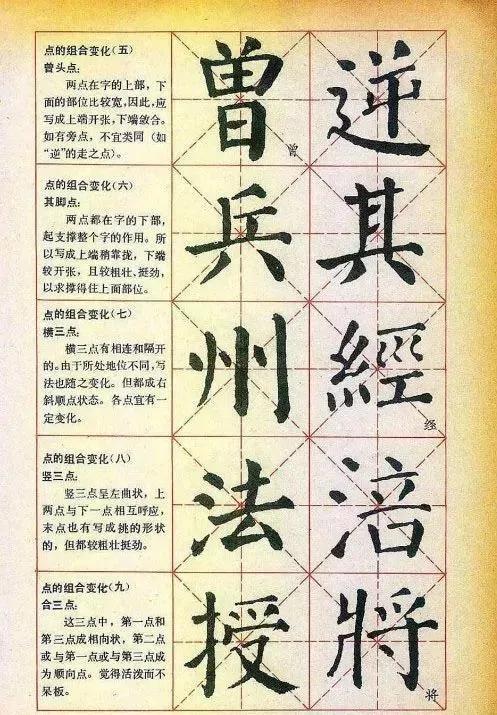 点的组合变化（五）
曾头点：
两点在字的上部，下
面的部位比较宽，因此，应
写成上端开张，下端敛合。
如有旁点，不宜类同（如
“逆”的走之点）。
曾
曾
逆
点的组合变化（六）
其脚点：
两点都在字的下部，
起支撑整个字的作用。所
以写成上端稍靠拢，下端
较开张，且较粗壮、挺劲，
以求撑得住上面部位。
兵
其
点的组合变化（七）
横三点：
横三点有相连和隔开
的。由于所处地位不同，写
法也随之变化。但都成右
斜顺点状态。各点宜有一
定变化。
州
經
经
点的组合变化（八）
竖三点：
竖三点呈左曲状，上
两点与下一点相互呼应，
末点也有写成挑的形状
的，但都较粗壮挺劲。
法
涪
点的组合变化（九）
合三点：
这三点中，第一点和
第三点成相向状，第二点
或与第一点或与第三点成
为顺向点。觉得活泼而不
呆板。
授
將
将